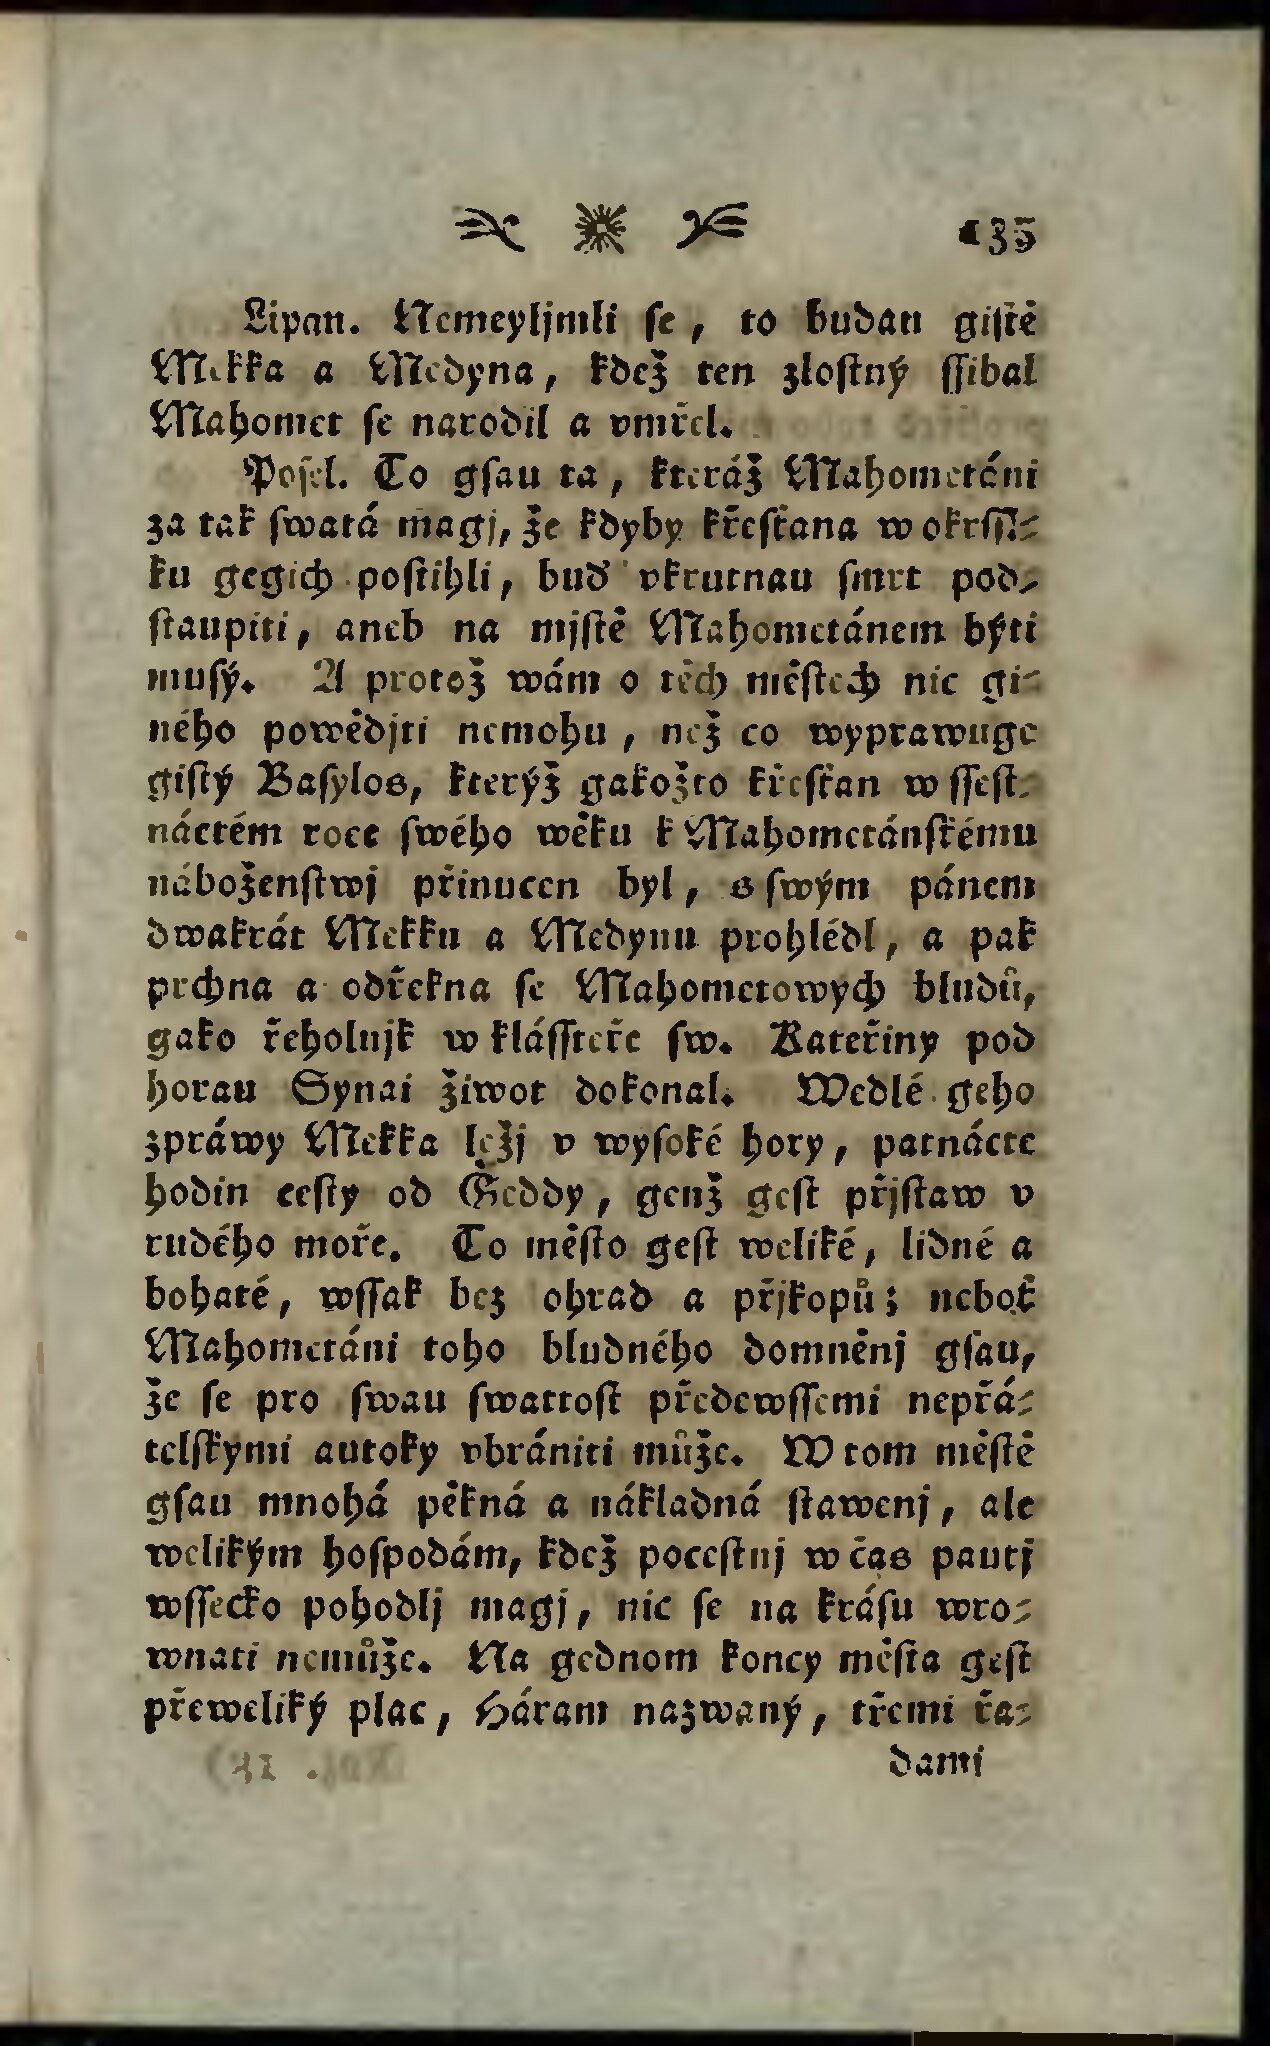 35
Lipan. Nemeyljmli se, to budau gistě
Mekka a Medyna, kdež ten zlostný ssibal
Mahomet se narodil a vmřel.
Posel. To gsau ta, kteráž Mahometáni
za tak swatá magj, že kdyby křesťana w okrssl-
ku gegich postihli, buď vkrutnau smrt pod-
staupiti, aneb na mjstě Mahometánem býti
musý. A protož wám o těch městech nic gi-
ného powědjti nemohu, než co wyprawuge
gistý Basylos, kterýž gakožto křesťan w ssest-
náctém roce swého wěku k Mahometánskému
náboženstwj přinucen byl, s swým pánem
dwakrát Mekku a Medynu prohlédl, a pak
prchna a odřekna se Mahometowých bludů,
gako řeholnjk w klássteře sw. Kateřiny pod
horau Synai žiwot dokonal. Wedlé geho
zpráwy Mekka ležj v wysoké hory, patnácte
hodin cesty od Geddy, genž gest přjstaw v
rudého moře. To město gest weliké, lidné a
bohaté, wssak bez ohrad a přjkopů; neboť
Mahometáni toho bludného domněnj gsau,
že se pro swau swattost předewssemi nepřá-
telskými autoky vbrániti může. W tom městě
gsau mnohá pěkná a nákladná stawenj, ale
welikým hospodám, kdež pocestnj w čas pautj
wssecko pohodlj magj, nic se na krásu wro-
wnati nemůže. Na gednom koncy města gest
přeweliký plac, Háram nazwaný, třemi řa-
dami